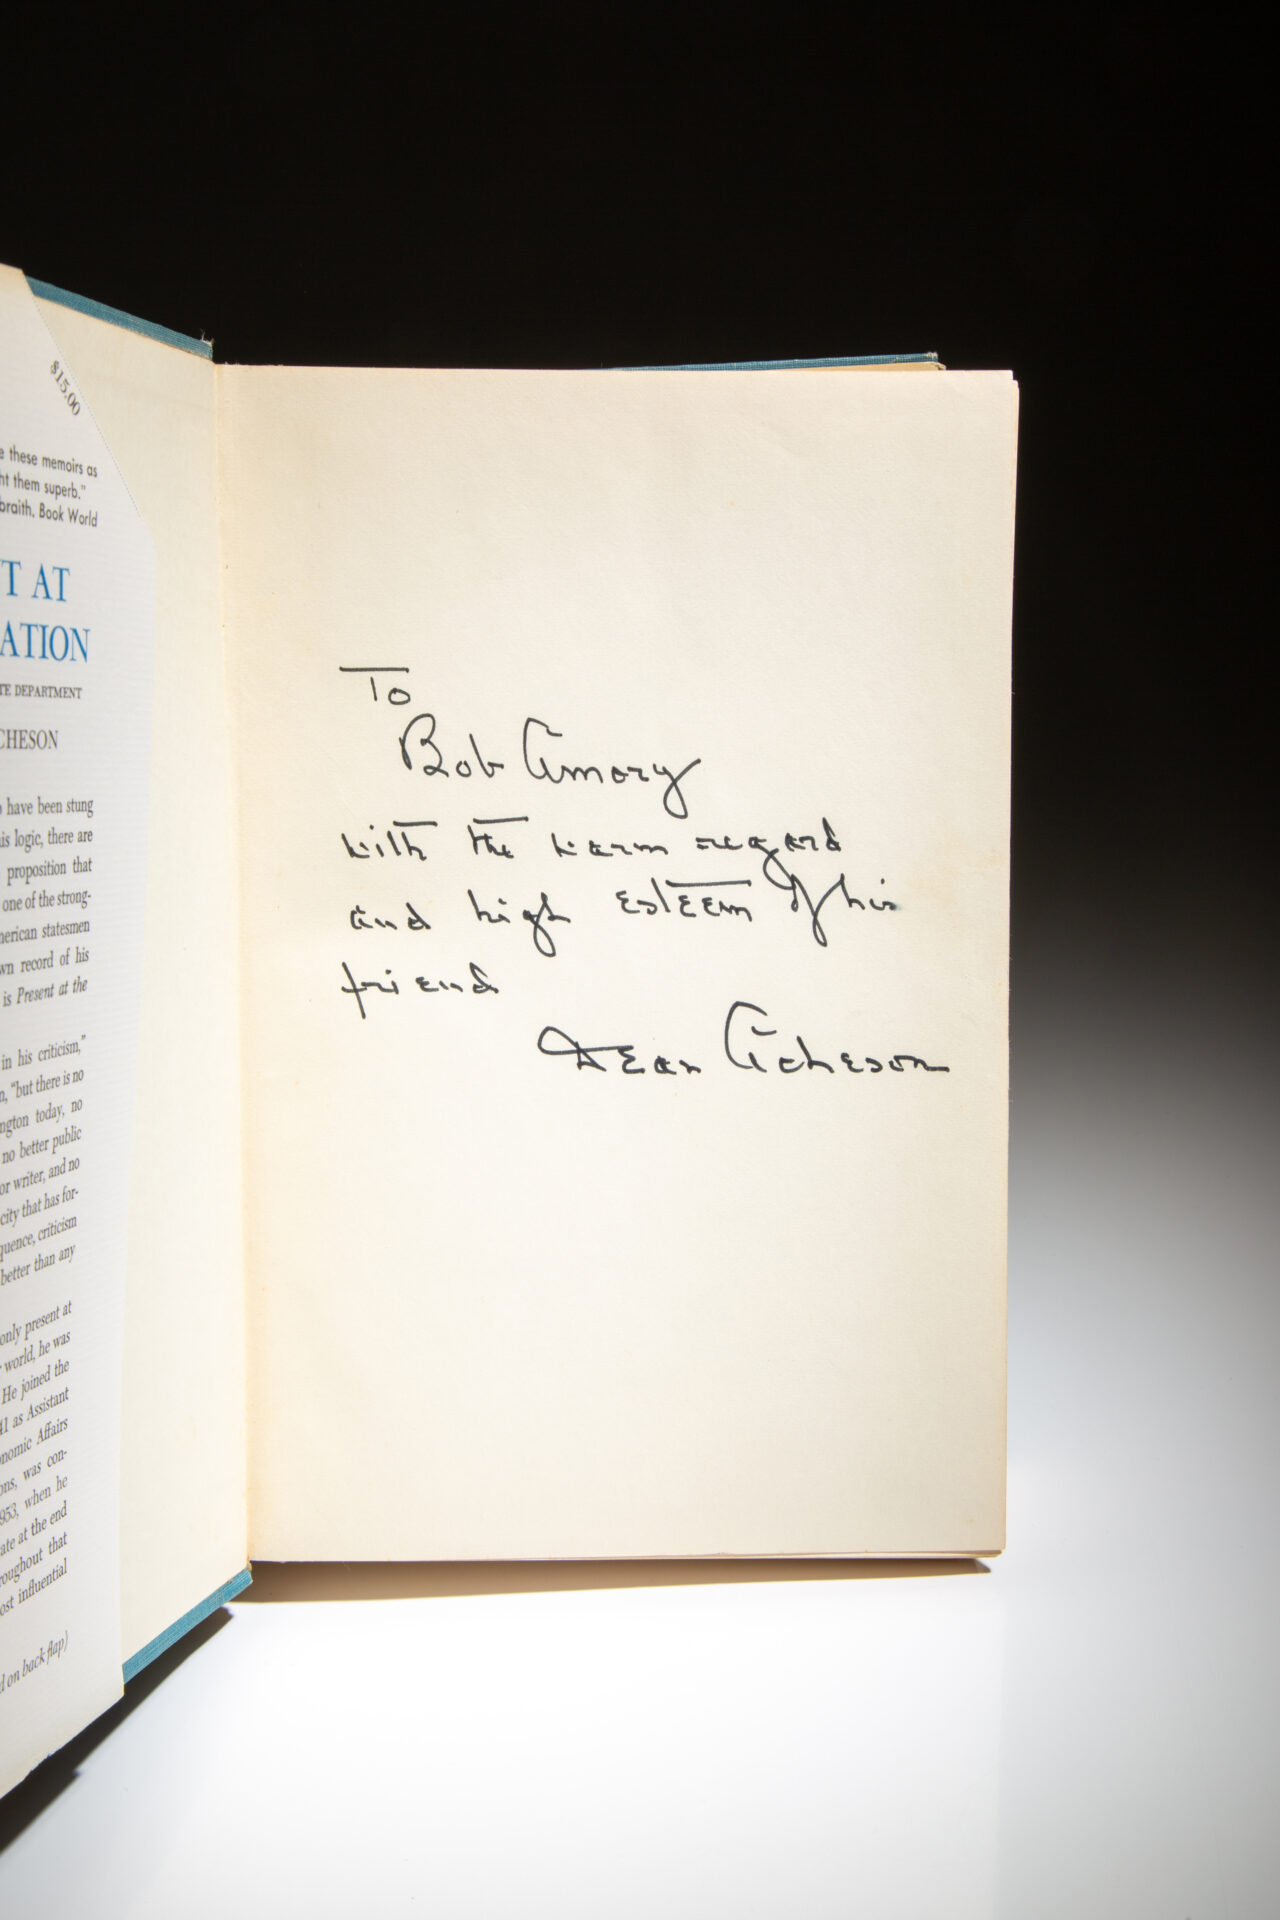 $15.00
e these memoirs as
ht them superb."
braith, Book World
T AT
ATION
TE DEPARTMENT
CHESON
o have been stung
is logic, there are
proposition that
one of the strong-
nerican statesmen
wn record of his
is Present at the
in his criticism,"
n, "but there is no
ngton today, no
no better public
or writer, and no
city that has for-
quence, criticism
better than any
only present at
world, he was
He joined the
41 as Assistant
onomic Affairs
ons, was con-
953, when he
ate at the end
roughout that
ost influential
d on back flap)
To
Bob Amory
with the warm regard
and high esteem of his
friend
Dean Acheson